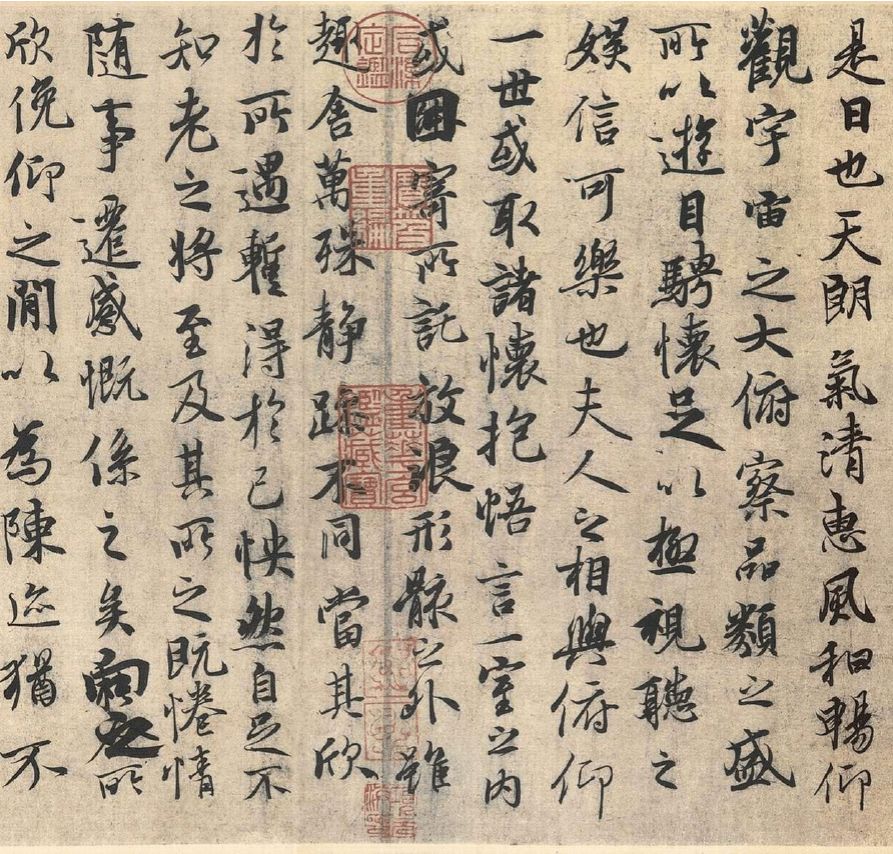 是日也天朗氣清惠風和暢仰
觀宇宙之大俯察品類之盛
所以遊目騁懷足以極視聽之
娛信可樂也夫人之相與俯仰
一世或取諸懷抱悟言一室之內
或因寄所託放浪形骸之外雖
趣舍萬殊静躁不同當其欣
於所遇暫得於己怏然自足不
知老之將至及其所之既惓情
隨事遷感慨係之矣向之所
欣俛仰之閒以為陳迹猶不